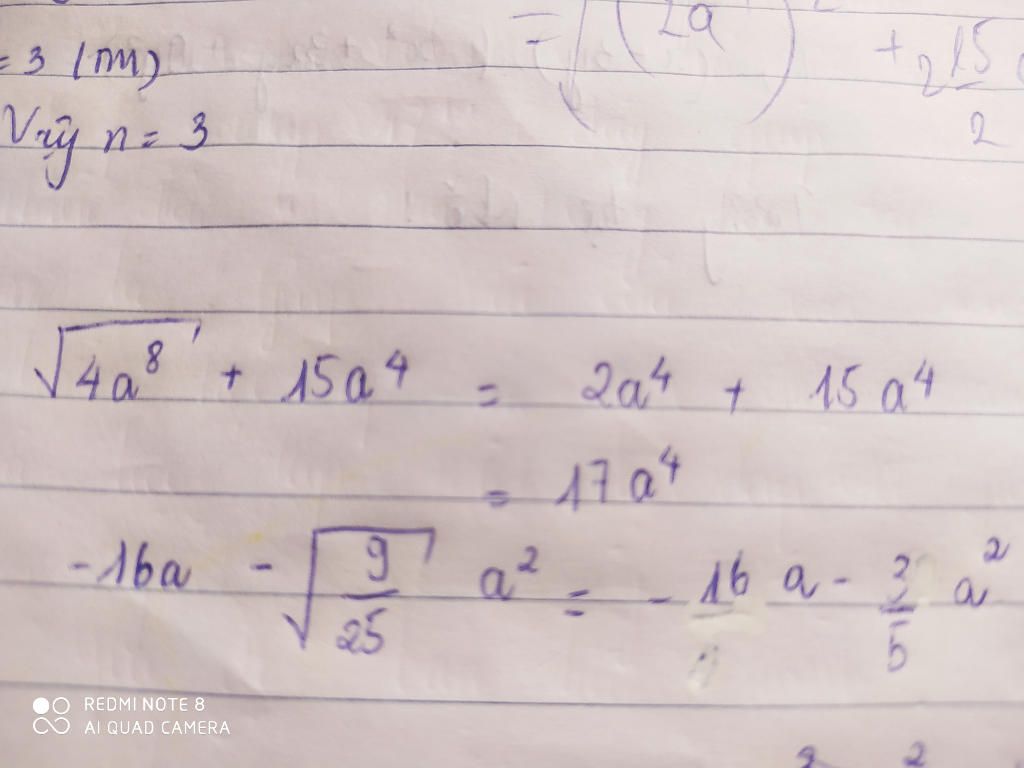 = 3 (TM)
Vậy n = 3
= √(2a)² + 2 15/2
√4a⁸ + 15a⁴ = 2a⁴ + 15a⁴
= 17a⁴
-16a - √9/25 a² = - 16 a - 3/5 a²
REDMI NOTE 8
AI QUAD CAMERA